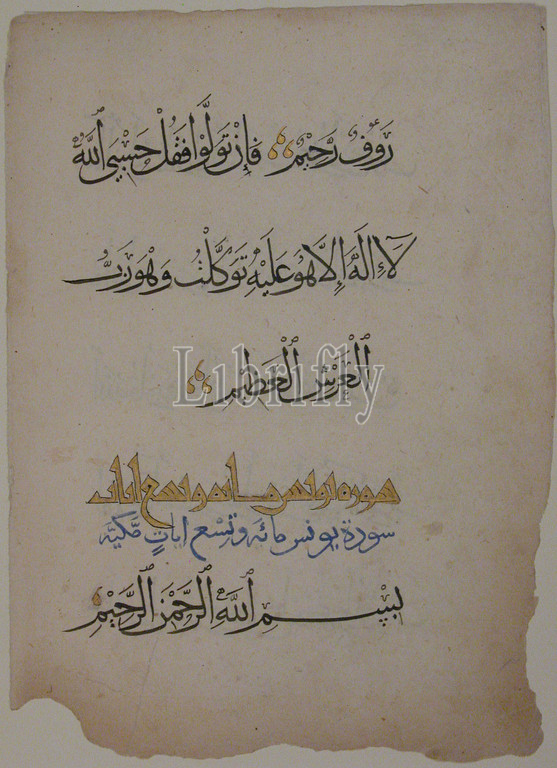 رَءُوفٌ رَّحِيمٌ فَإِنْ تَوَلَّوْا فَقُلْ حَسْبِيَ اللَّهُ
لَا إِلَهَ إِلَّا هُوَ عَلَيْهِ تَوَكَّلْتُ وَهُوَ رَبُّ
الْعَرْشِ الْعَظِيمِ
Librifly
سورة يونس مائة وتسع ايات
سورة يونس مائه وتسع اياتٍ مَّكيَّه
بِسْمِ اللَّهِ الرَّحْمَنِ الرَّحِيمِ